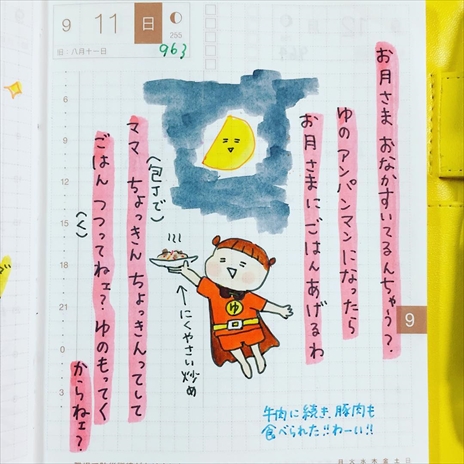 9 11 日
255
旧：八月十一日
963
お月さま おなかすいてるんちゃう？
ゆの アンパンマンになったら
お月さまにごはんあげるわ
(包丁で)
ママ ちょっきん ちょっきんってして
ごはん つつってねェ？ゆのもってく
(く)
からねェ？
ゆ
←にくやさい炒め
牛肉に続き、豚肉も
食べられた!!わーい!!
6
9
12
15
18
21
0
3
9
日月火水木金土日